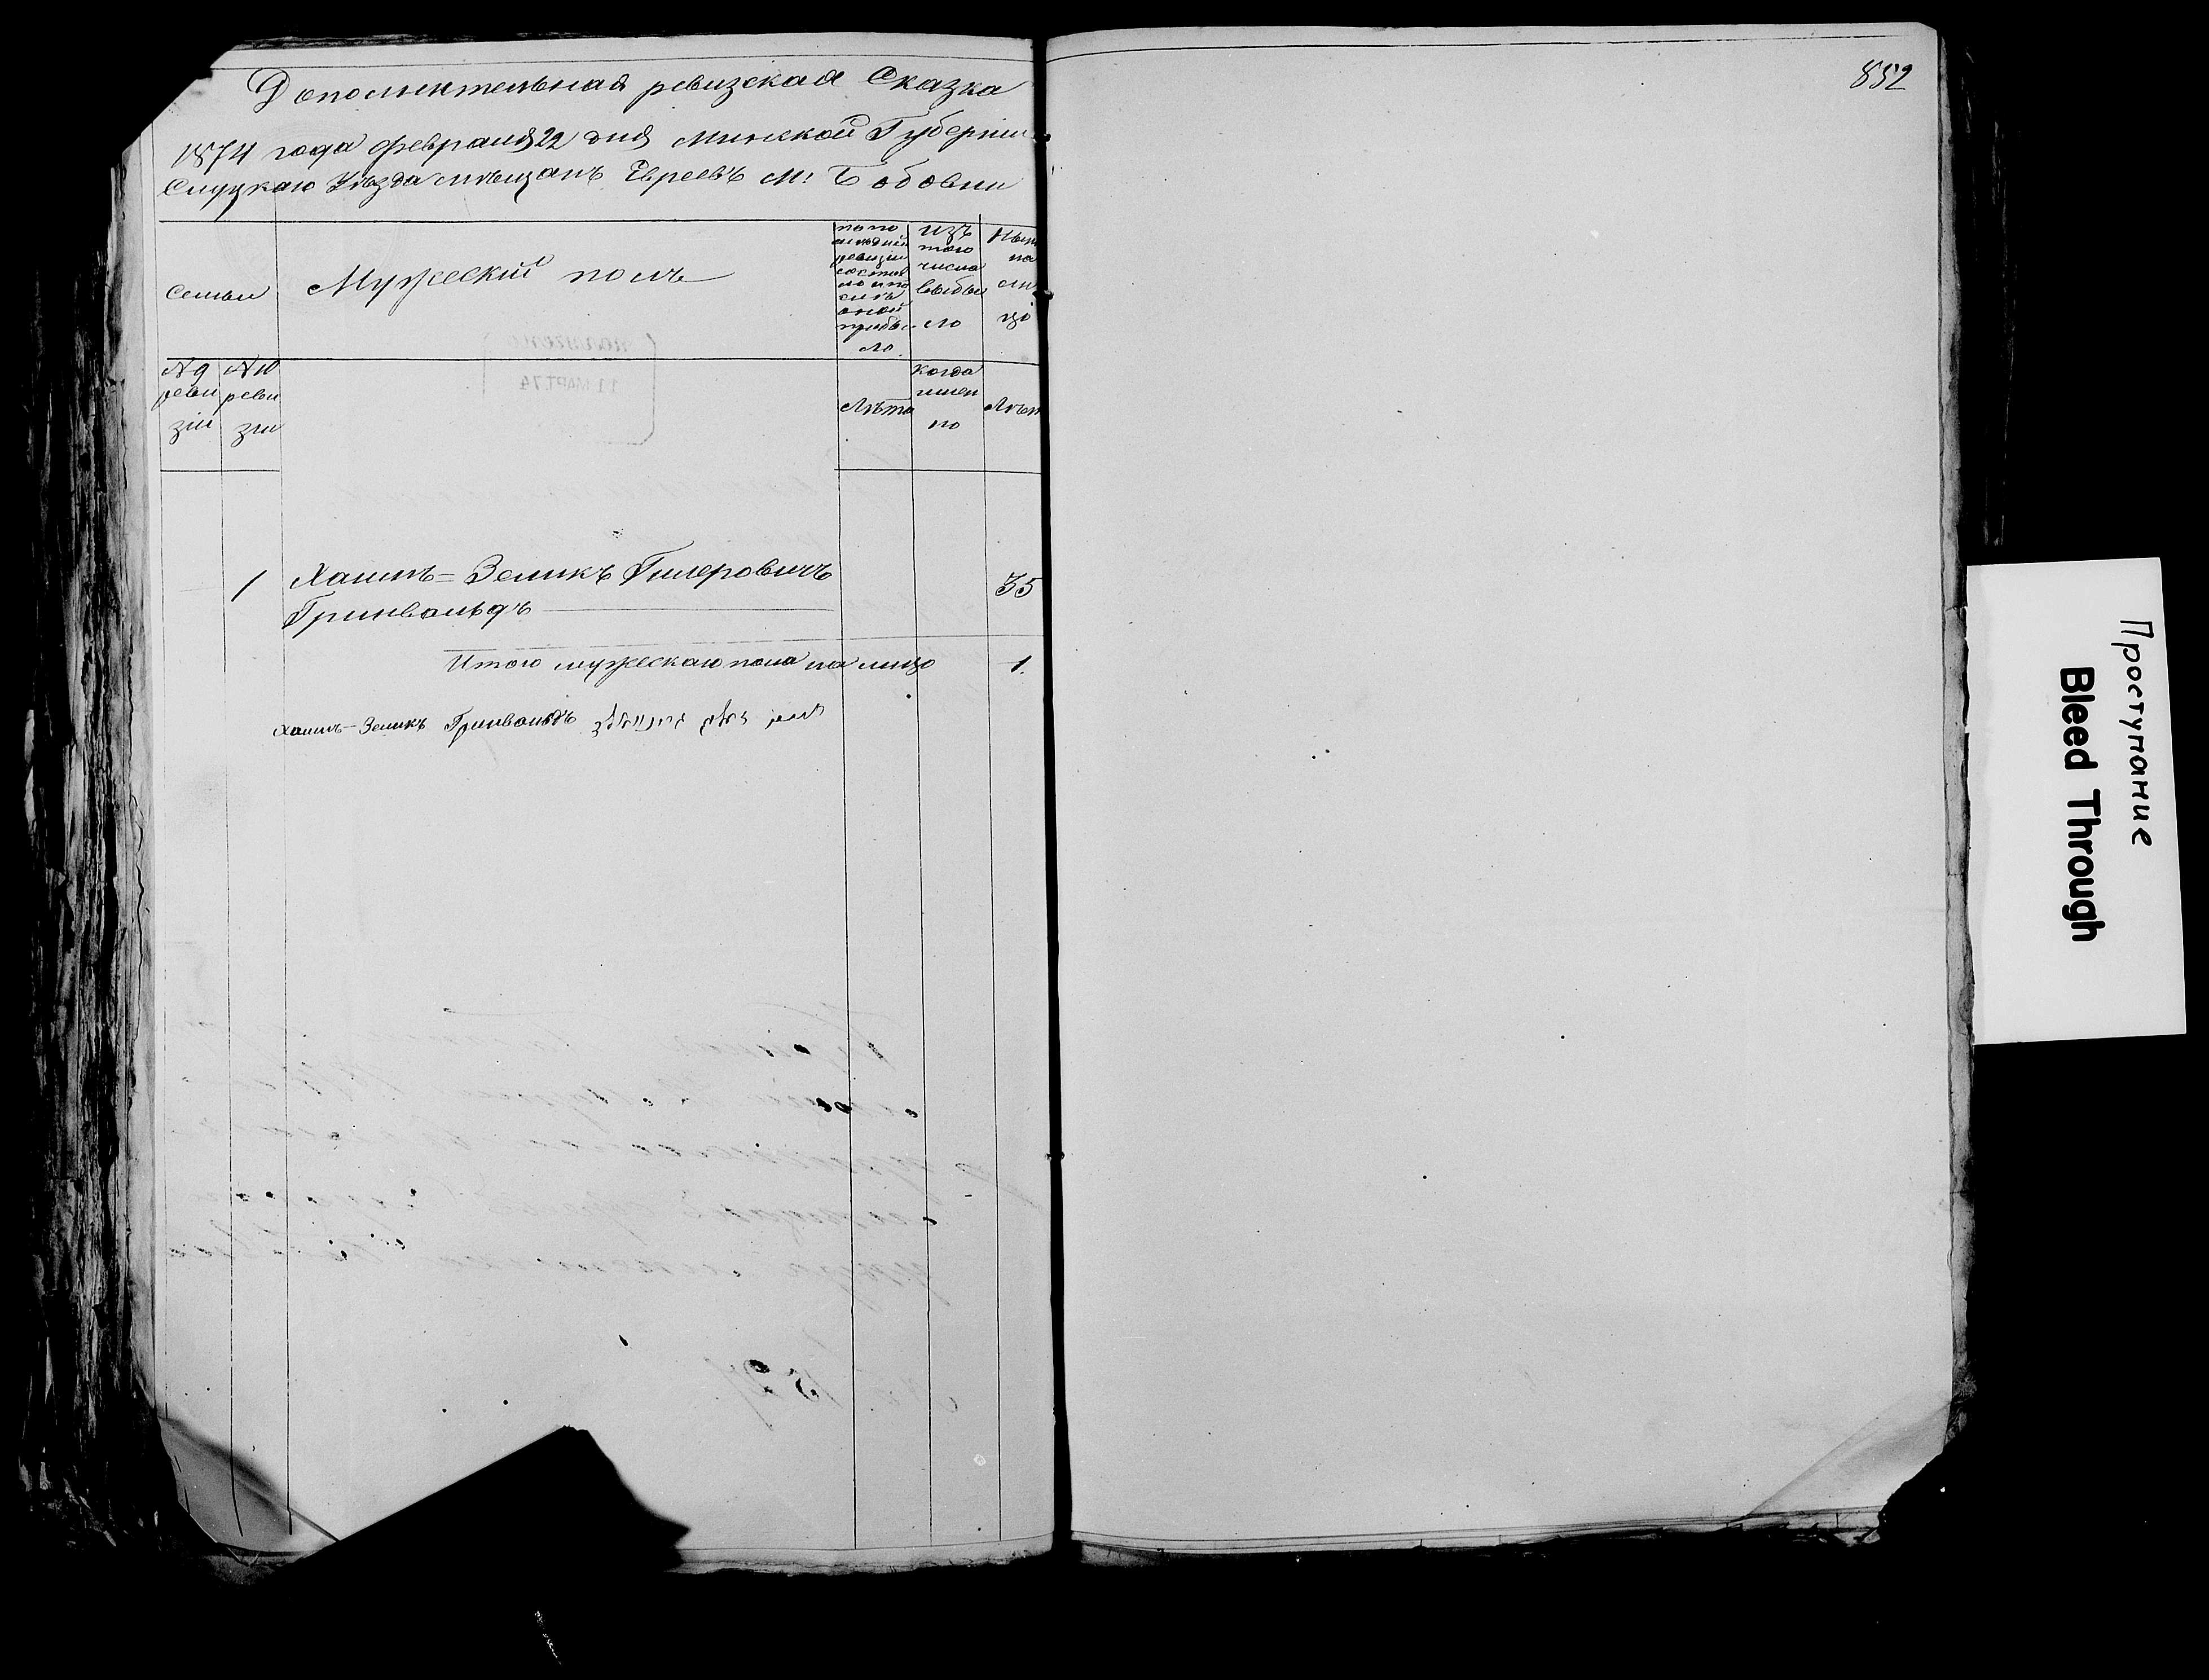 852
Дополнительная ревизская Сказка
1874 года февраля 22 дня Минской Губернии
Слуцкаго Уѣзда мѣщанъ Евреевъ М. Бобовни
Семьи
Мужеский полъ
по по
слѣдней
ревизіи
состоя
ло и по
слѣ
оной
прибы
ло.
изъ
того
числа
выбы
ло
Нын
на
ли
цо
№ 9
реви
зіи
№ 10
реви
зіи
Лѣта
когда
имен
но
Лѣт
1 Хаимъ=Зеликъ Гилеровичъ 35
Гринвольдъ
Итого мужескаго пола на лицо 1.
Хаимъ-Зеликъ Гринвольдъ
Проступание
Bleed Through